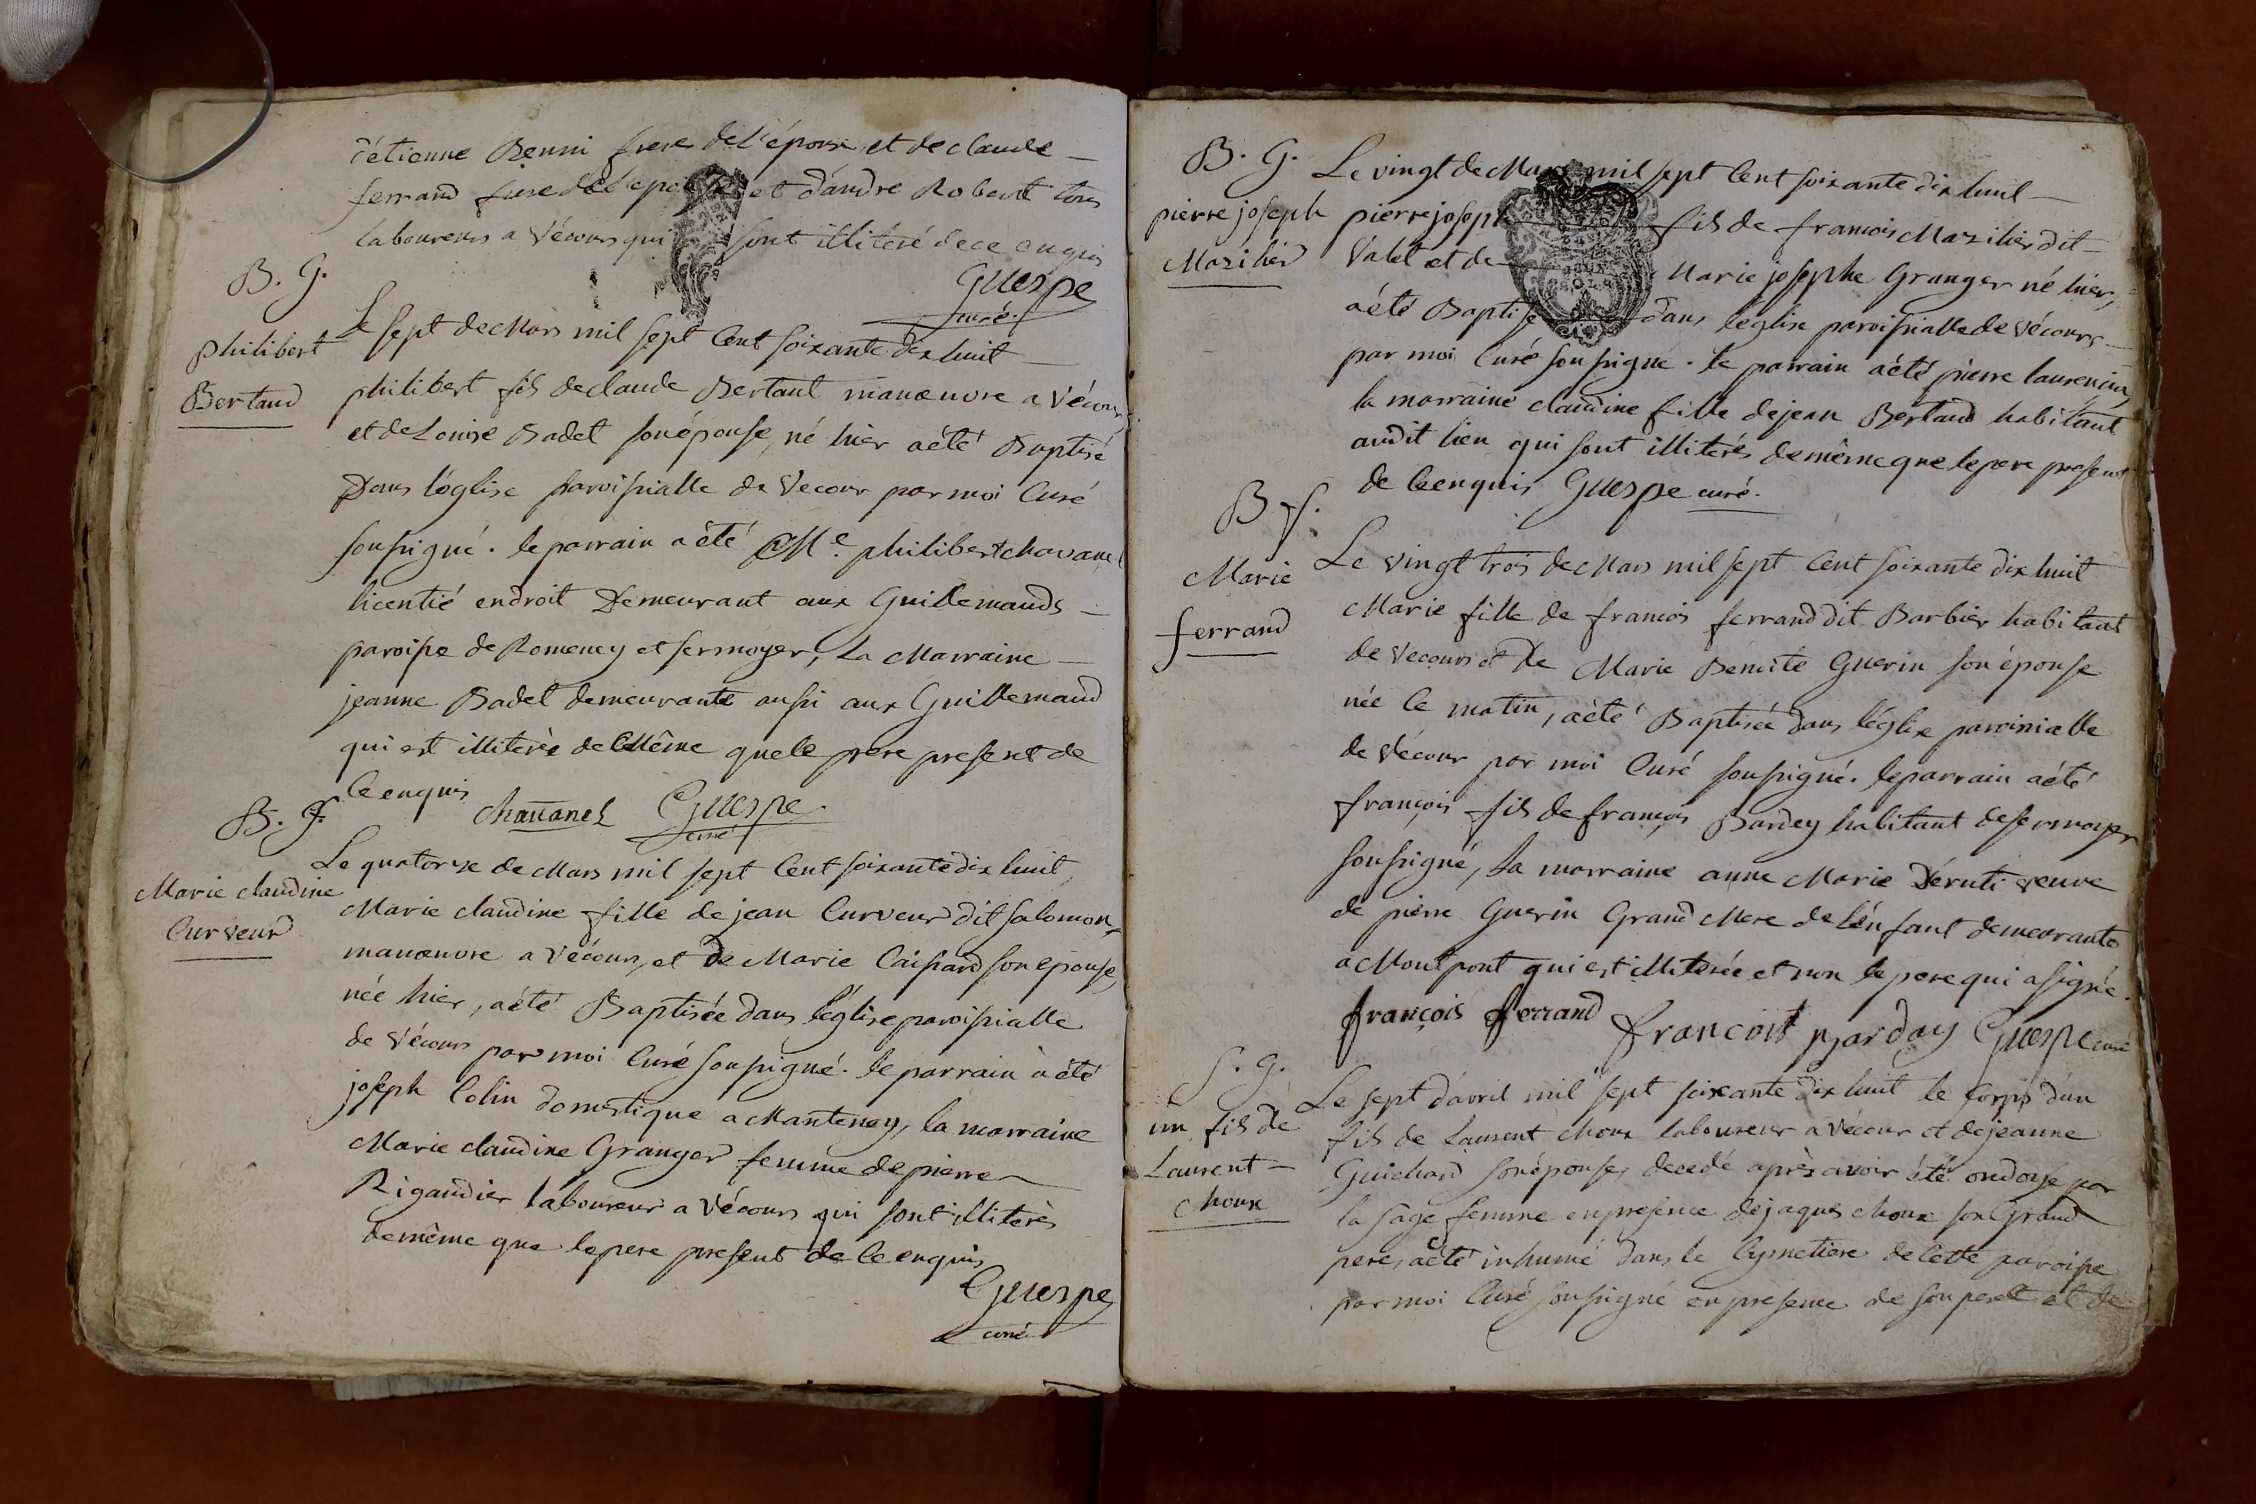 d'étienne Benni frere de L'épouse et de claude
ferrand frere de l'epouse et d'andre Robert tous
laboureurs a Vécours qui sont illiteré de ce enquis
Guespe
curé.
B. G.
philibert
Bertaud
Le sept de Mars mil sept Cent soixante dix huit
philibert fils de claude Bertaut manœuvre a Vécour,
et de Louise Badet son épouse, né hier a été Baptisé
Dans l'église paroissialle de Vecour par moi Curé
soussigné. le parrain a été Me. philibert chavanel
licentié en droit Demeurant aux Guillemauds
paroisse de Romeney et sermoyer, La Marraine
jeanne Badet demeurante aussi aux Guillemaud
qui est illiterée de Même que le pere present de
Ce enquis
chauanel Guespe
curé
B. f.
Marie claudine
Curveur
Le quatorze de Mars mil sept Cent soixante dix huit,
Marie claudine fille de jean Curveur dit salomon,
manœuvre a Vécour, et de Marie Caissard son épouse,
née hier, a été Baptisée dans l'église paroissialle
de Vécours par moi Curé soussigné. le parrain a été
joseph Colin domestique a Mantenay, la marraine
Marie claudine Granger femme de pierre
Rigaudier laboureur a Vécours qui sont illiterés
de même que le pere present de Ce enquis
Guespe
curé
B. G.
pierre joseph
Mazilier
Le vingt de Mars mil sept Cent soixante dix huit
pierre joseph fils de francois Mazilier dit
Valet et de Marie josephe Granger né hier,
a été Baptisé dans l'église paroissialle de Vécours
par moi Curé soussigné. le parrain a été pierre laurencin,
la marraine claudine fille de jean Bertaud habitant
audit lieu qui sont illiterés de même que le pere present
de Ce enquis Guespe curé.
B f.
Marie
ferrand
Le vingt trois de Mars mil sept Cent soixante dix huit
Marie fille de francois ferrand dit Barbier habitant
de vecours et De Marie Benoite Guerin son épouse
née Ce matin, a été Baptisée dans l'église paroissialle
de Vécour par moi Curé soussigné. le parrain a été
françois fils de françois Bardey habitant de sermoyer
soussigné, la marraine anne Marie veuve
de pierre Guerin Grand Mere de l'énfant demeurante
a Montpont qui est illiterée et non le pere qui a signé.
françois ferrand francois Barday Guespe curé
S. G.
un fils de
Laurent
choux
Le sept d'avril mil sept soixante dix huit le corps d'un
fils de Laurent choux laboureur a Vécour et de jeanne
Guichard son épouse, decedé après avoir été ondoyé par
la sage femme en presence de jaques choux son Grand
pere, a été inhumé dans le Cymetiere de Cette paroisse
par moi Curé soussigné en presence de son pere et de